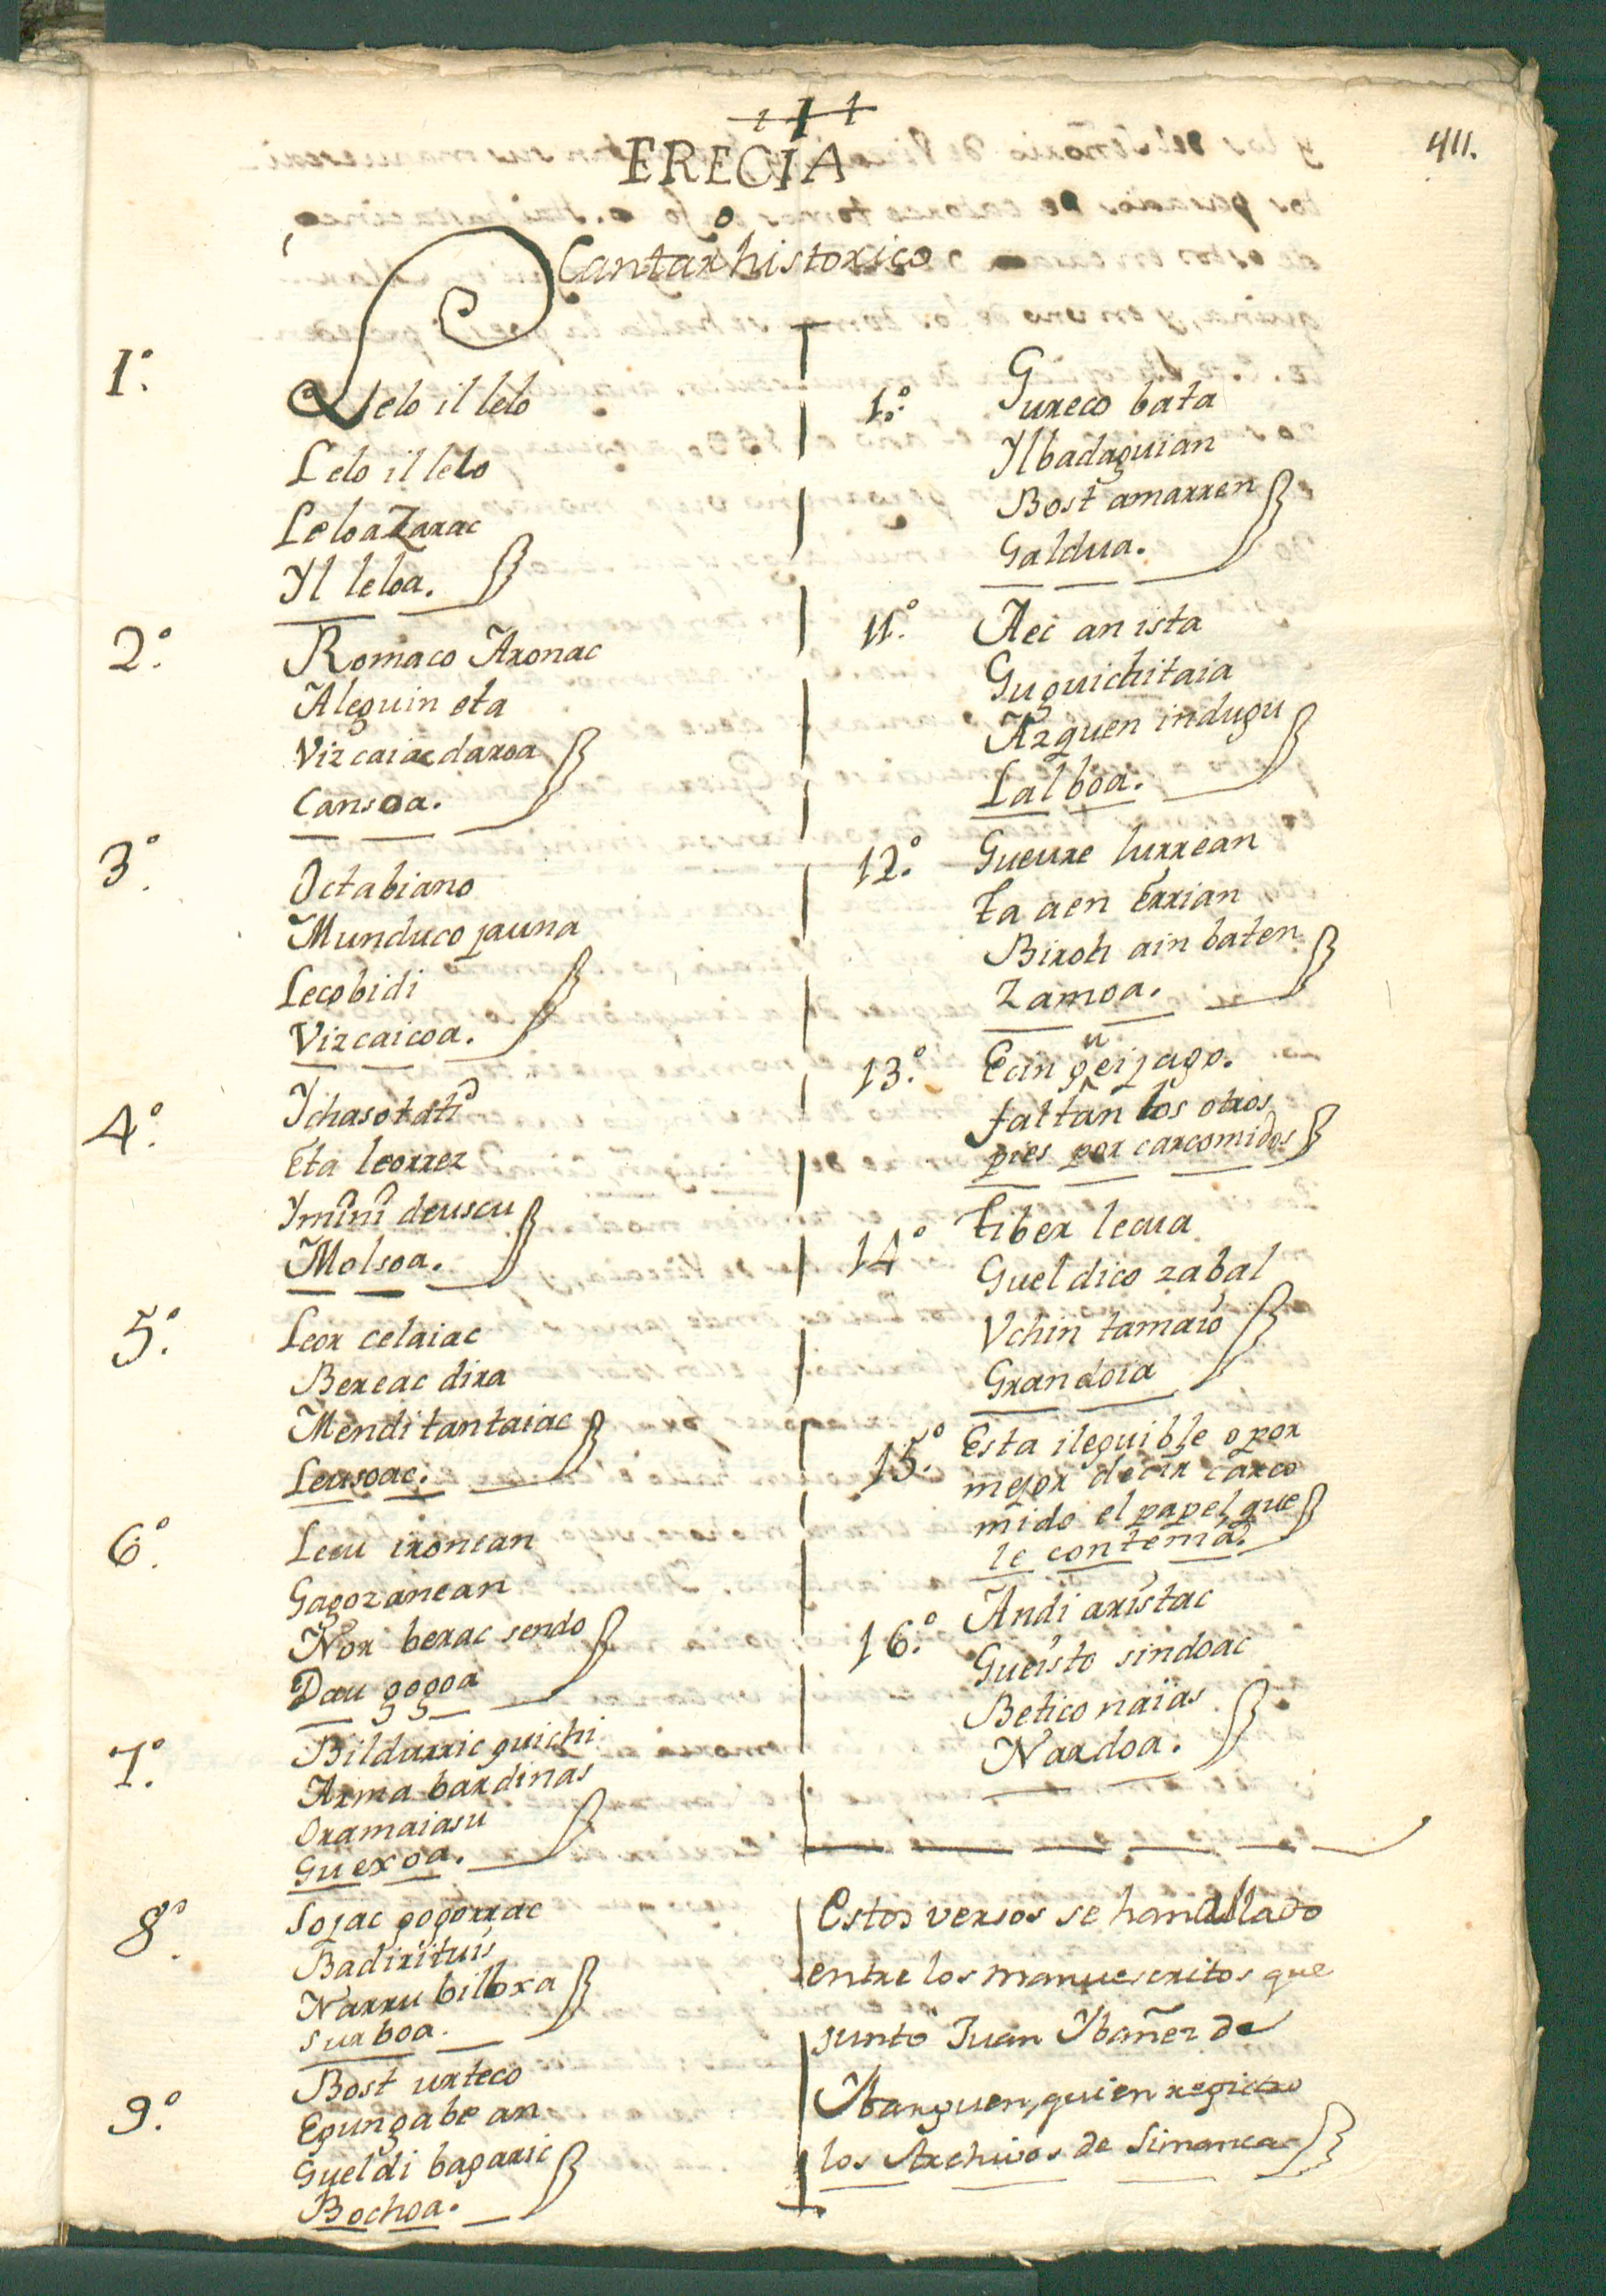 411.
ERECIA
o
Cantar historico
1.º
Lelo il lelo
Lelo il lelo
Leloa Zarac
Yl leloa.
2.º
Romaco Aronac
Aleguin eta
Vizcaiac daroa
Cansoa.
3.º
Octabiano
Munduco jauna
Lecobidi
Vizcaicoa.
4.º
Ychasotati
Eta leorrez
Ymini deuscu
Molsoa.
5.º
Leor celaiac
Bereac dira
Mendi tantaiac
Leusoac.
6.º
Lecu ironean
Gagozanean
Nor berac sendo
Dau gogoa
7.º
Bildurric guichi
Arma bardinas
Oramaiasu
Guexoa.
8.º
Sojac gogorrac
Badirituis
Narru biloxa
surboa.
9.º
Bost urteco
Egun gabe an
Gueldi bagaric
Bochoa.
1.º
Gureco bata
Yl badaguian
Bost amarren
Galdua.
11.º
Aec an ista
Gu guichitaia
Azquen indugu
Lalboa.
12.º
Gueure lurrean
ta aen Errian
Biroch ain baten
Zamoa.
13.º
Ecin gueijago.
faltan los otros
pies por carcomidos
14.º
Tiber lecua
Gueldico zabal
Vchin tamaio
Grandoia
15.º
Esta ileguible o por
mejor decir carco
mido el papel que
le contenia.
16.º
Andi aristac
Gueisto sindoac
Betico naias
Nardoa.
Estos versos se han allado
entre los manuescritos que
juntó Juan Ybañez de
Ybarguen, quien registro
los Archivos de Simanca